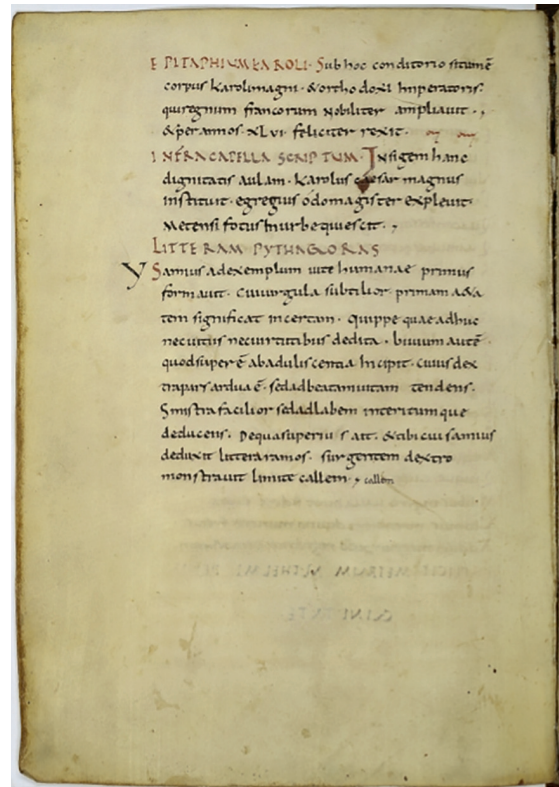 EPITAPHIUM KAROLI · Sub hoc conditorio situm ē
corpus karoli magni · & orthodoxi Imperatoris ·
qui regnum francorum nobiliter ampliavit ·,
& per annos · XLVI · feliciter rexit ·
INFRA CAPELLA SCRIPTUM · Insigem hanc
dignitatis aulam · karolus caesar magnus
instituit · egregius odo magister explevit ·
Metensi fotus in urbe quiescit ·,
LITTERAM PYTHAGORAS
Y Samius ad exemplum vite humanae primus
formavit · cui virgula subtilior primam aeta
tem significat incertam · quippe quae adhuc
nec vitiis nec virtutibus dedita · bivium autē
quod super ē ab aduliscentia Incipit · cuius dex
tra pars ardua ē · sed ad beatam vitam tendens ·
Sinistra facilior sed ad labem interitumque
deducens · De qua super ius ait · & tibi cui samius
deduxit littera ramos · surgentem dextro
monstravit limite callem ·, callem